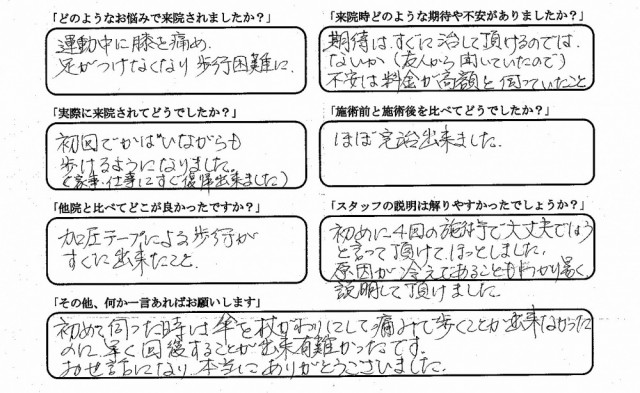 「どのようなお悩みで来院されましたか？」
運動中に膝を痛め、
足がつけなくなり歩行困難に、
「来院時どのような期待や不安がありましたか？」
期待は、すぐに治して頂けるのでは、
ないか（友人から聞いていたので）
不安は料金が高額と伺っていたこと
「実際に来院されてどうでしたか？」
初回でかばいながらも
歩けるようになりました。
（家事・仕事にすぐ復帰出来ました）
「施術前と施術後を比べてどうでしたか？」
ほぼ完治出来ました。
「他院と比べてどこが良かったですか？」
加圧テープによる歩行が
すぐに出来たこと。
「スタッフの説明は解りやすかったでしょうか？」
初めに4回の施術で大丈夫でしょう
と言って頂けて、ほっとしました。
原因が冷えであることもわかり易く
説明して頂けました。
「その他、何か一言あればお願いします」
初めて伺った時は傘を杖がわりにして痛みで歩くことが出来なかった
のに、早く回復することが出来有難かったです。
お世話になり、本当にありがとうございました。